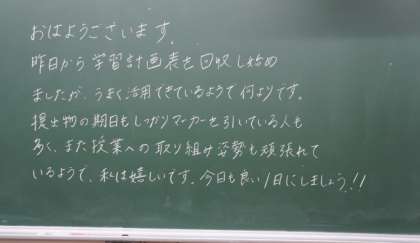 おはようございます。
昨日から学習計画表を回収し始め
ましたが、うまく活用できているようで何よりです。
提出物の期日もしっかりマーカーを引いている人も
多く、また授業への取り組み姿勢も頑張れて
いるようで、私は嬉しいです。今日も良い1日にしましょう!!